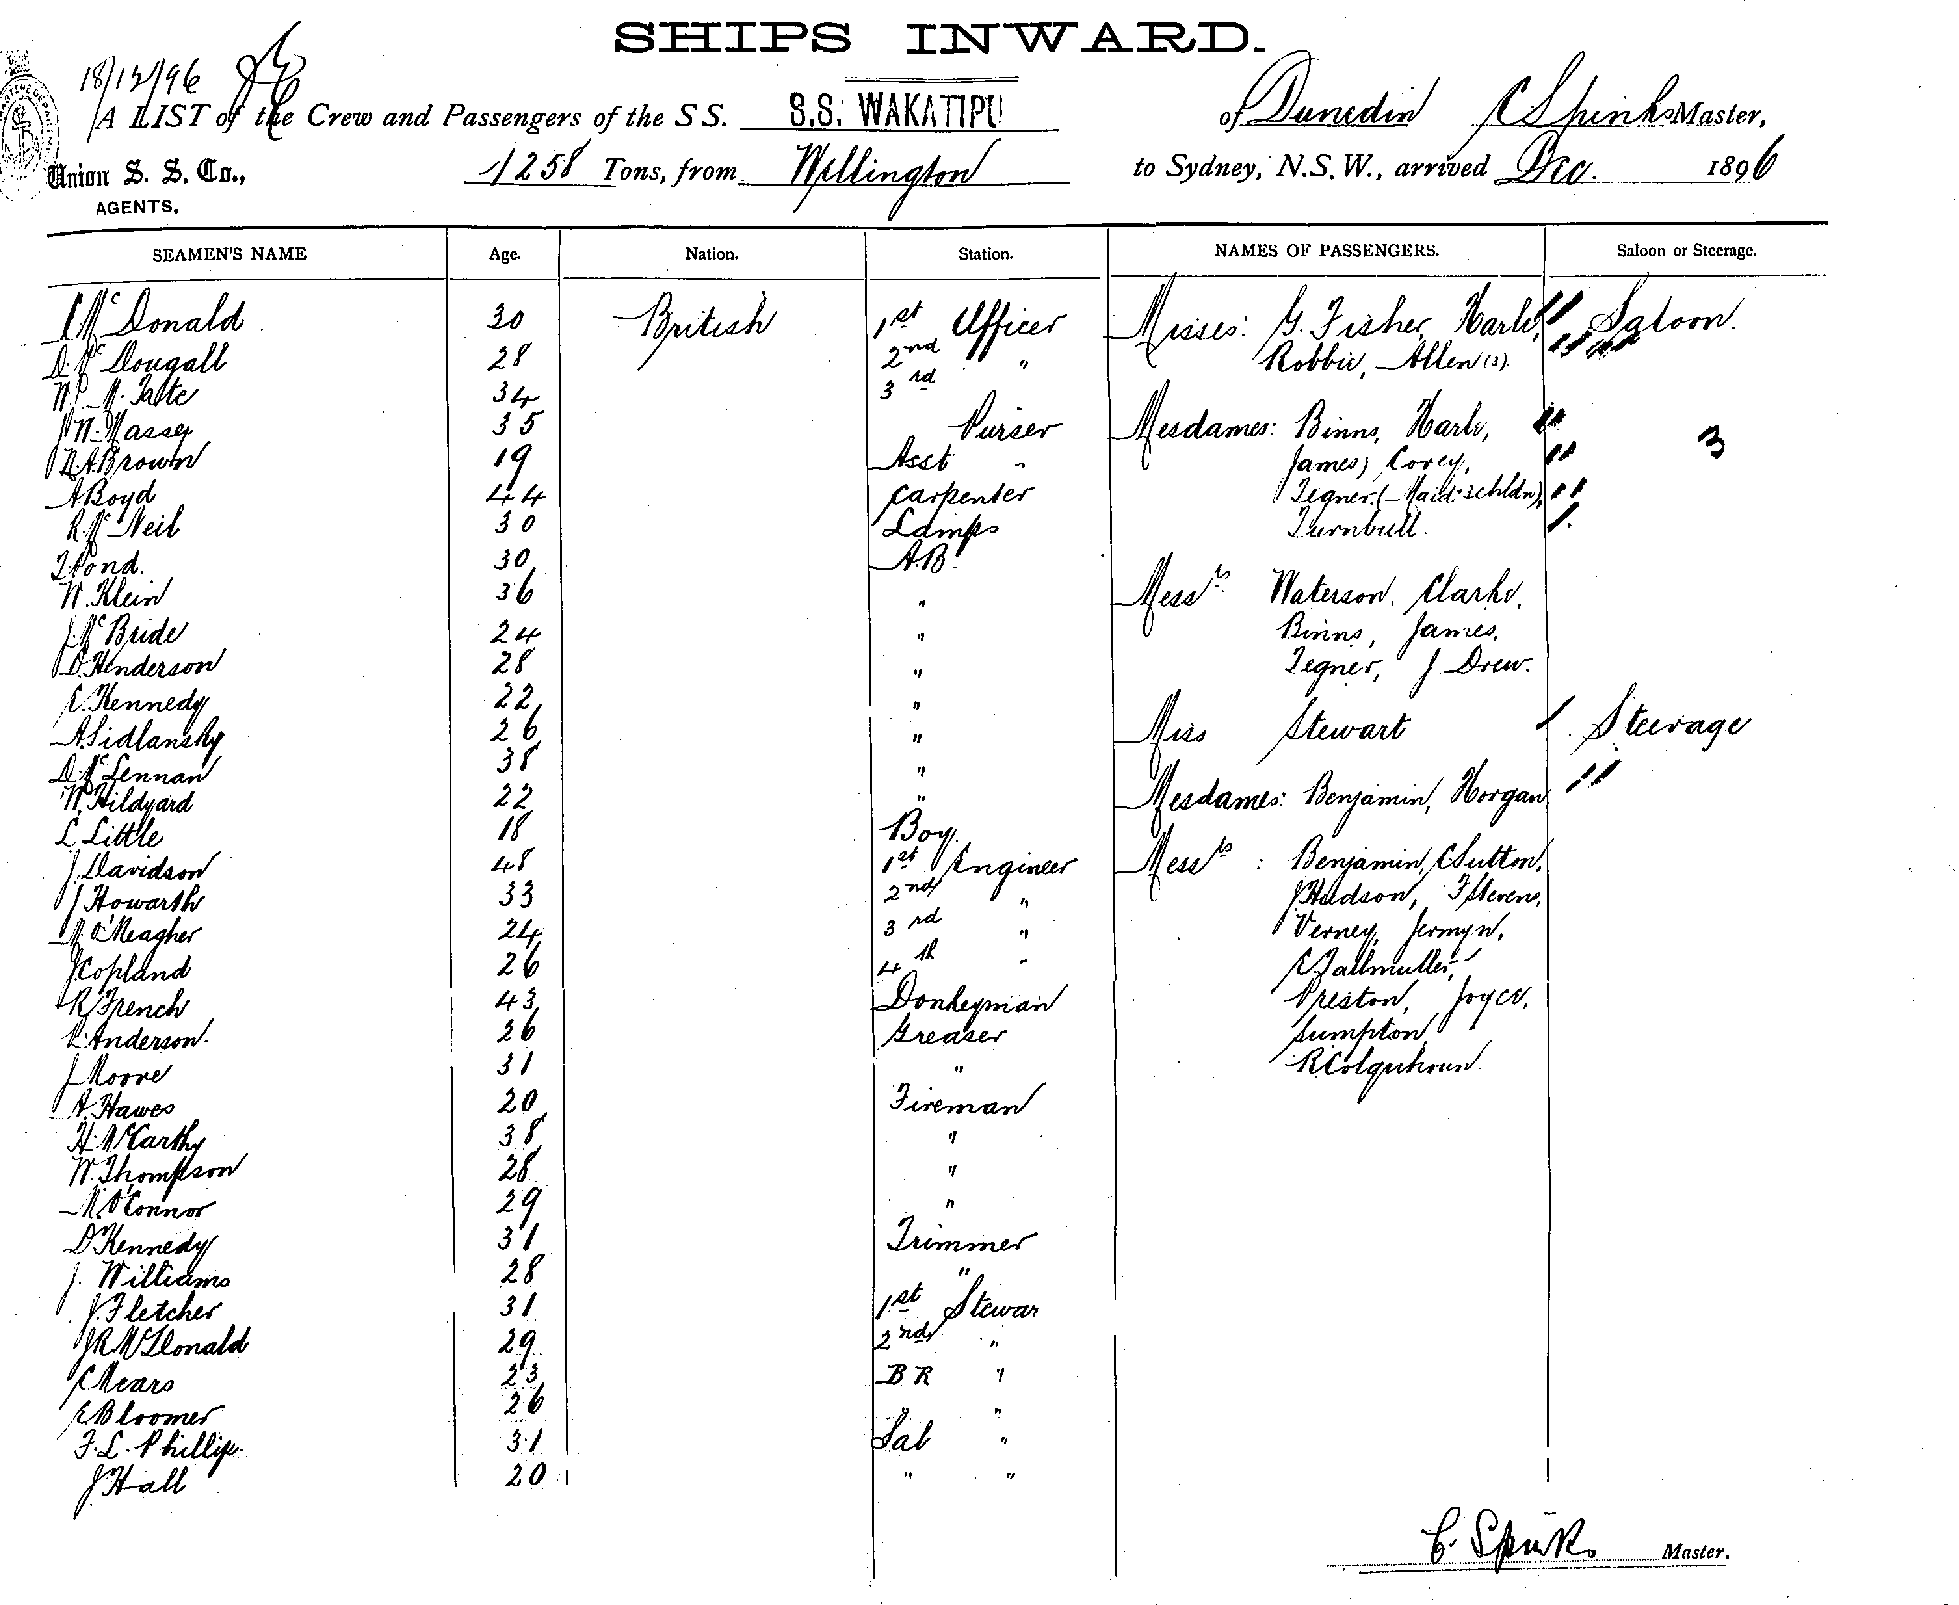 SHIPS INWARD.
18/12/96
A LIST of the Crew and Passengers of the S S. S.S. WAKATIPU of Dunedin C Spinks Master,
Union S. S. Co., 1258 Tons, from Wellington to Sydney, N.S.W., arrived Dec. 1896
AGENTS.
SEAMEN'S NAME Age. Nation. Station. NAMES OF PASSENGERS. Saloon or Steerage.
C McDonald 30 British 1st Officer Misses: G. Fisher, Harle, Saloon.
D. McDougall 28 2nd " Robbie, Allen (s).
W. M. Tatte 34 3rd
J W. Massey 35 Purser Mesdames: Binns, Harle, 3
D. A. Brown 19 Asst " James, Corey,
A Boyd 44 Carpenter Tegner. (Maid. 3 chldn),
R. McNeil 30 Lamps Turnbull.
T Pond. 30 A.B.
W. Klein 36 " Messrs Waterson, Clarke,
J. McBride 24 " Binns, James,
D. Henderson 28 " Tegner, J Drew.
C. Kennedy 22 "
A. Sidlansky 26 " Miss Stewart Steerage
D. McLennan 38 "
W. Hildyard 22 " Mesdames: Benjamin, Horgan
L Little 18 Boy.
J. Davidson 48 1st Engineer Messrs : Benjamin, C Sutton,
J Howarth 33 2nd " J Hudson, F Stevens,
M O'Meagher 24 3rd " Verney, Jermyn,
J Copland 26 4th " C Fallmuller,
R French 43 Donkeyman Preston, Joyce,
P. Anderson. 26 Greaser Sumpton,
J Moore 31 " R Colquhoun.
A. Hawes 20 Fireman
H. McCarthy 38 "
W. Thompson 28 "
M. O'Connor 29 "
D Kennedy 31 Trimmer
J. Williams 28 "
J. Fletcher 31 1st Stewar
J R McDonald 29 2nd "
C Mears 23 B R "
E Bloomer 26 "
F. L. Phillips 31 Sal "
J Hall 20 " "
C. Spinks Master.